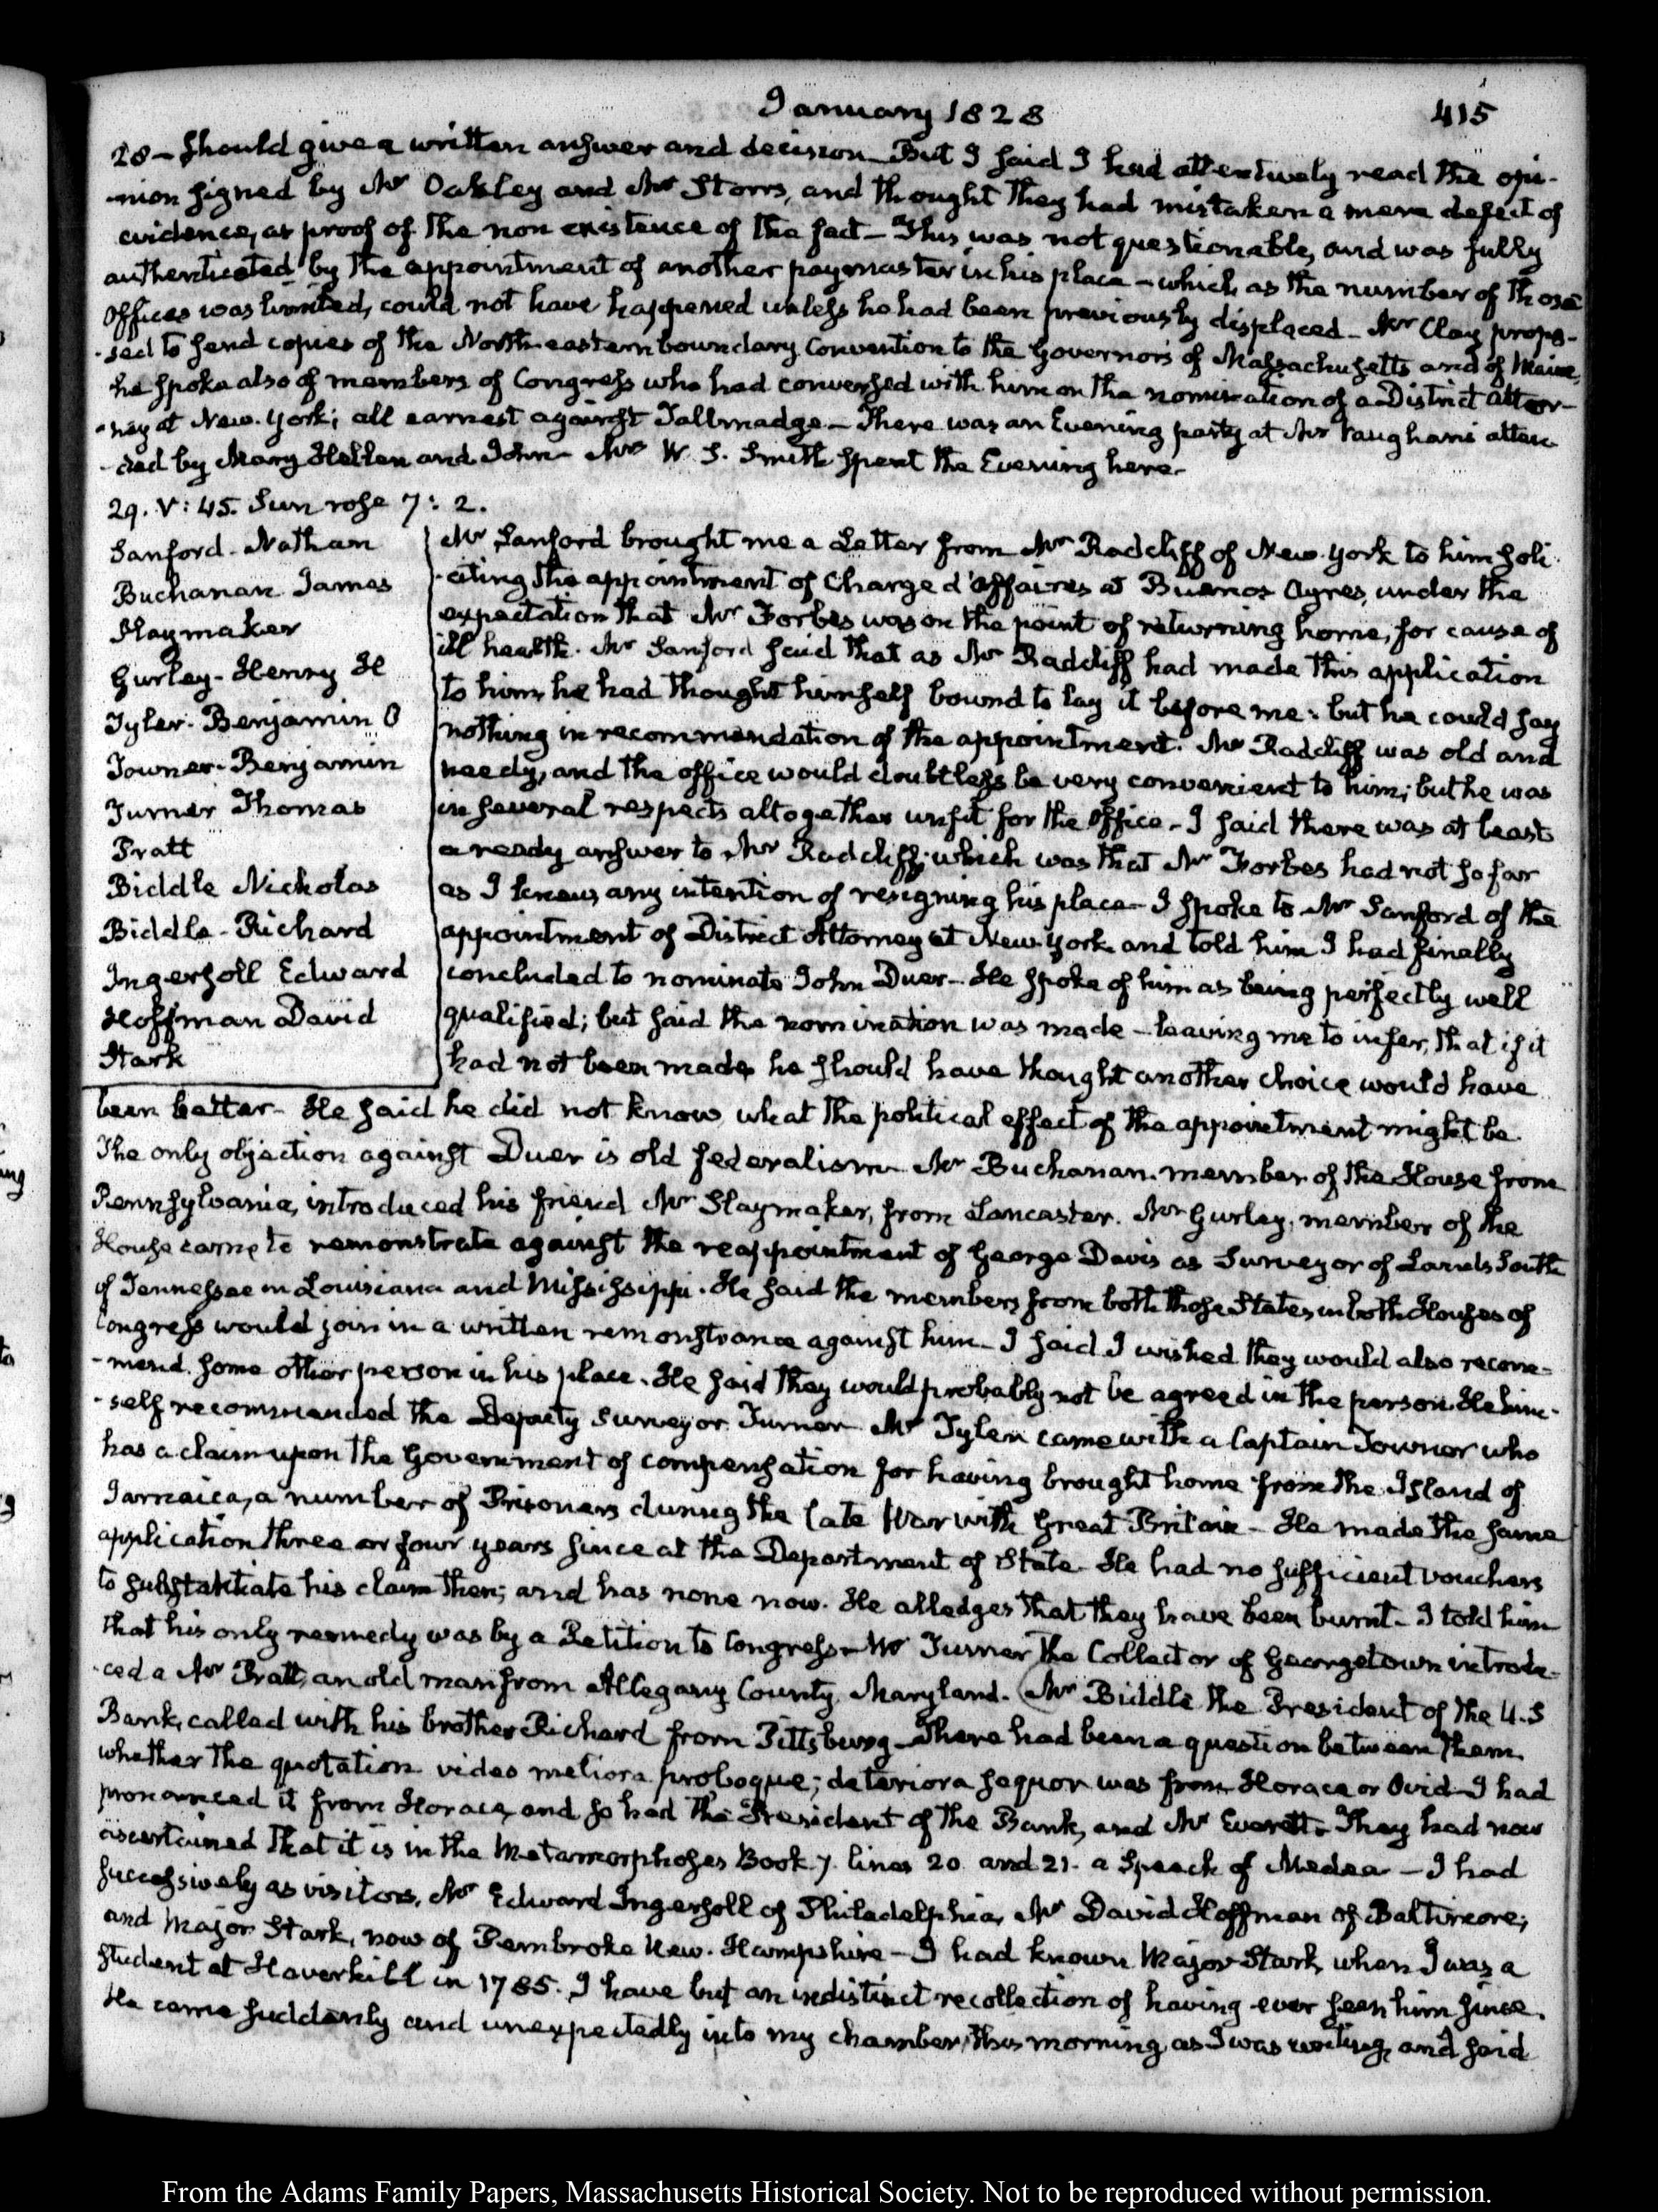 January 1828
415
28 – should give a written answer and decision – But I said I had attentively read the opi-
-nion signed by Mr Oakley and Mr Storrs, and thought they had mistaken a mere defect of
evidence, as proof of the non existence of the fact – This was not questionable, and was fully
authenticated by the appointment of another paymaster in his place – which as the number of those
Offices was limited, could not have happened unless he had been previously displaced – Mr Clay propo-
-sed to send copies of the North eastern boundary Convention to the Governors of Massachusetts and of Maine,
he spoke also of members of Congress who had conversed with him on the nomination of a District Attor-
-ney at New-York; all earnest against Tallmadge – There was an Evening party at Mr Vaughan's atten
-ded by Mary Hellen and John – Mrs W. S. Smith spent the Evening here –
29. V: 45. Sun rose 7: 2.
Sanford – Nathan
Buchanan James
Slaymaker
Gurley – Henry H
Tyler – Benjamin O
Towner – Benjamin
Turner Thomas
Pratt
Biddle Nicholas
Biddle – Richard
Ingersoll Edward
Hoffman David
Stark
Mr Sanford brought me a Letter from Mr Radcliff of New-York to him soli
-citing the appointment of Charge d'Affaires at Buenos Ayres, under the
expectation that Mr Forbes was on the point of returning home, for cause of
ill health. Mr Sanford said that as Mr Radcliff had made this application
to him, he had thought himself bound to lay it before me: but he could say
nothing in recommendation of the appointment. Mr Radcliff was old and
needy, and the office would doubtless be very convenient to him; but he was
in several respects altogether unfit for the Office – I said there was at least
a ready answer to Mr Radcliff; which was that Mr Forbes had not so far
as I knew, any intention of resigning his place – I spoke to Mr Sanford of the
appointment of District Attorney at New-York and told him I had finally
concluded to nominate John Duer – He spoke of him as being perfectly well
qualified; but said the nomination was made – leaving me to infer, that if it
had not been made, he should have thought another choice would have
been better – He said he did not know what the political effect of the appointment might be
The only objection against Duer is old federalism – Mr Buchanan – member of the House from
Pennsylvania, introduced his friend Mr Slaymaker, from Lancaster. Mr Gurley, member of the
House came to remonstrate against the reappointment of George Davis as Surveyor of Lands South
of Tennessee in Louisiana and Mississippi. He said the members from both those States, in both Houses of
Congress would join in a written remonstrance against him – I said I wished they would also recom-
-mend some other person in his place. He said they would probably not be agreed in the person. He him-
-self recommended the Deputy Surveyor Turner – Mr Tyler came with a Captain Towner who
has a claim upon the Government of compensation for having brought home from the Island of
Jamaica, a number of Prisoners during the late War with Great Britain – He made the same
application three or four years since at the Department of State – He had no sufficient vouchers
to substantiate his claim then; and has none now. He alledges that they have been burnt – I told him
that his only remedy was by a Petition to Congress – Mr Turner, the Collector of Georgetown introdu-
-ced a Mr Pratt, an old man from Allegany County, Maryland. Mr Biddle the President of the U.S
Bank, called with his brother Richard from Pittsburg – There had been a question between them,
whether the quotation video meliora proboque; deteriora sequor was from Horace or Ovid – I had
pronounced it from Horace, and so had the President of the Bank, and Mr Everett. They had now
ascertained that it is in the Metamorphoses Book 7. lines 20 and 21. a speech of Medea – I had
successively as visitors, Mr Edward Ingersoll of Philadelphia, Mr David Hoffman of Baltimore,
and Major Stark, now of Pembroke New-Hampshire – I had known Major Stark, when I was a
student at Haverhill in 1785. I have but an indistinct recollection of having ever seen him since.
He came suddenly and unexpectedly into my chamber, this morning, as I was writing, and said
From the Adams Family Papers, Massachusetts Historical Society. Not to be reproduced without permission.